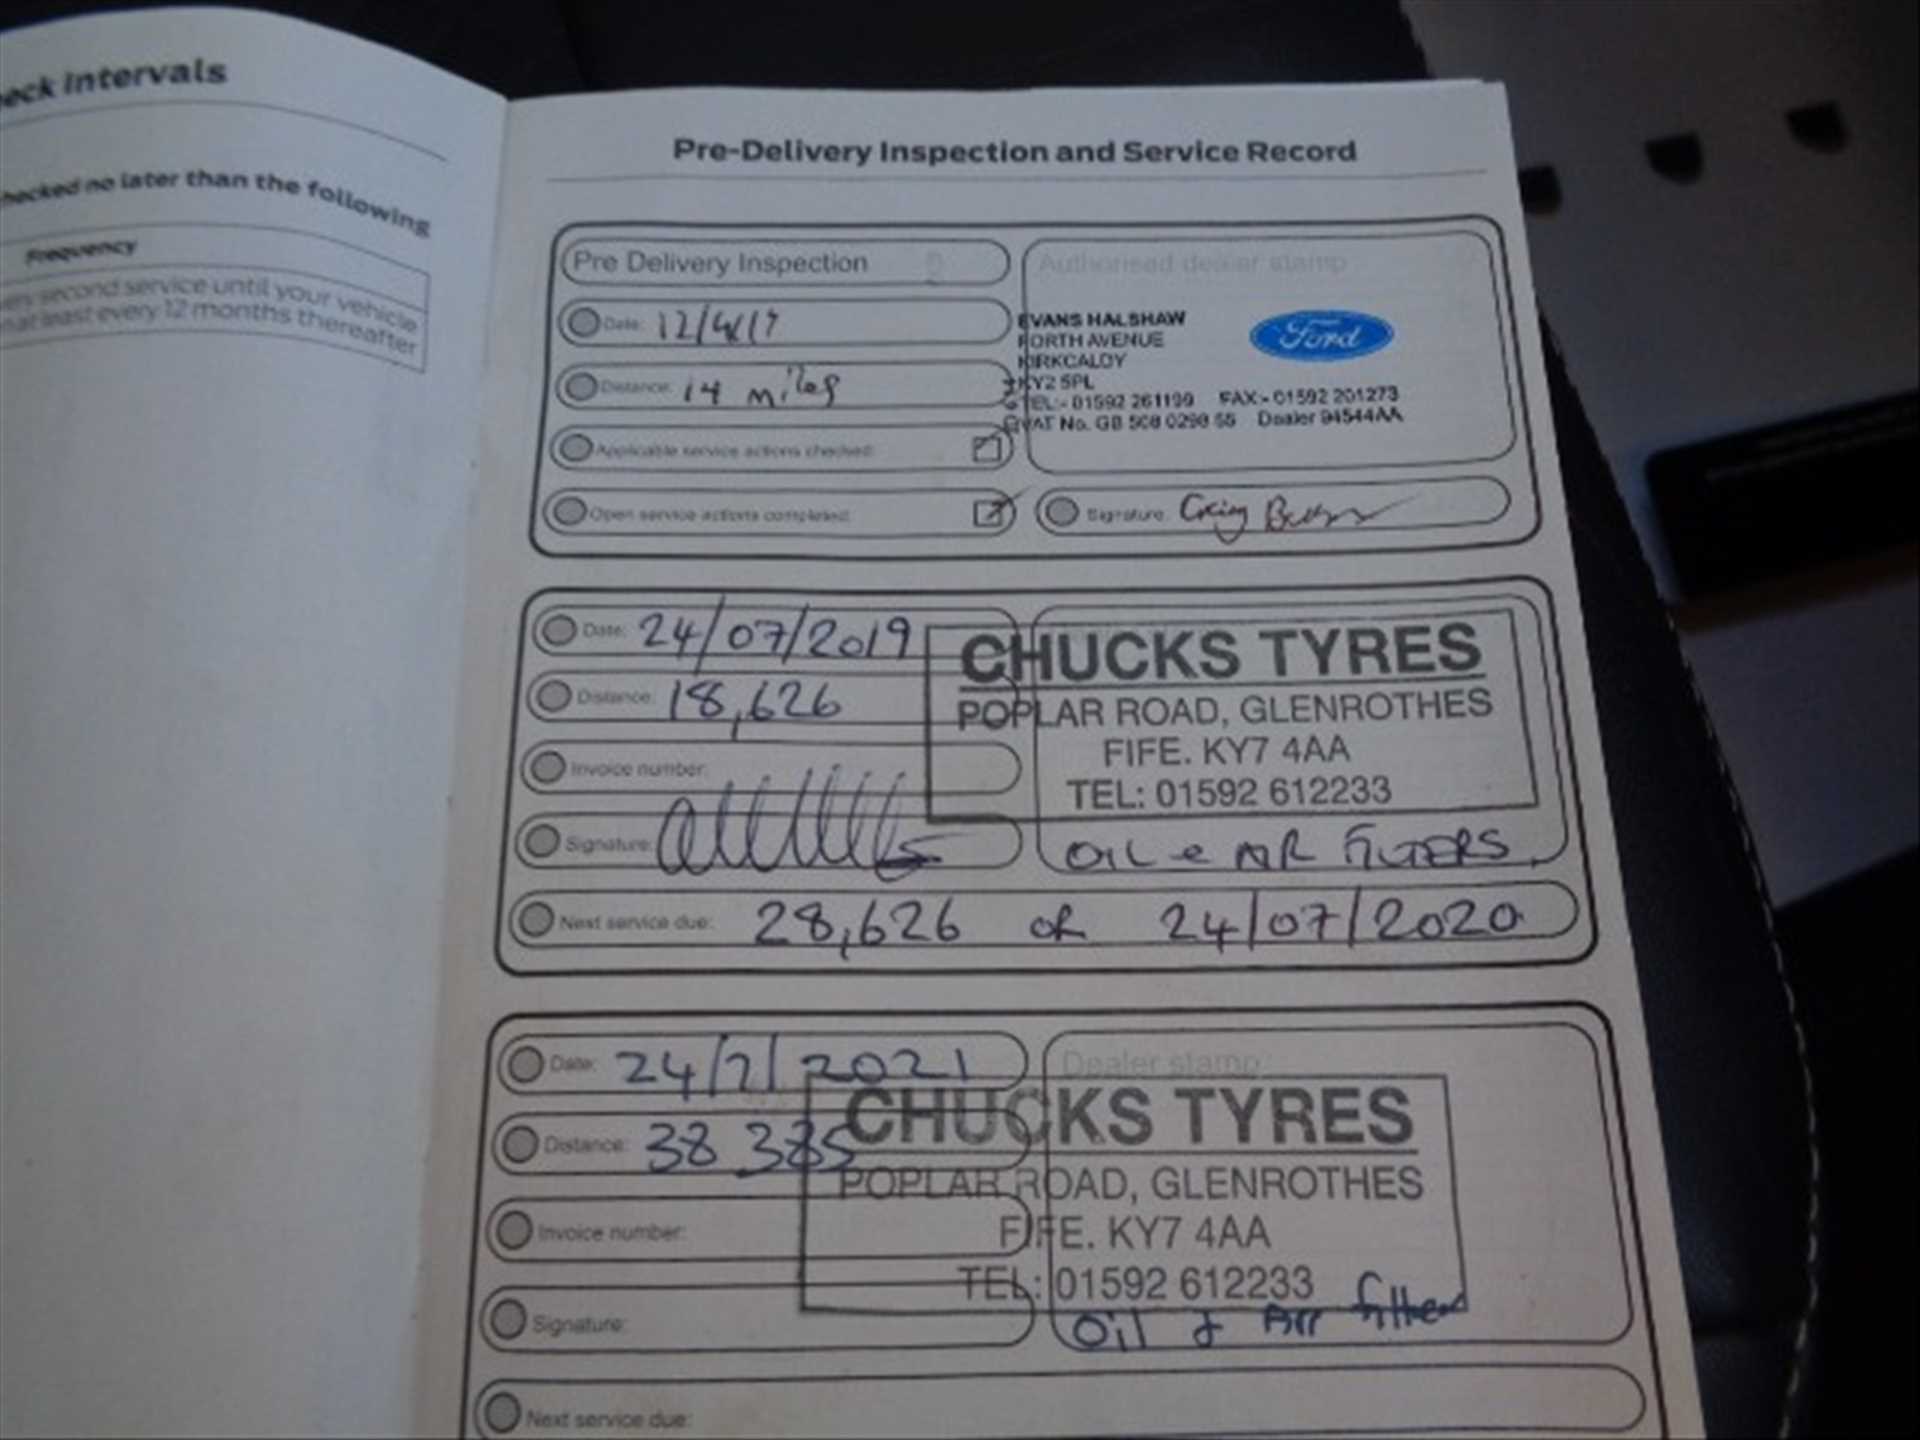 eck Intervals
hecked no later than the following
Frequency
ery second service until your vehicle
at least every 12 months thereafter
Pre-Delivery Inspection and Service Record
Pre Delivery Inspection
Authorised dealer stamp
Date: 12/4/17
Distance: 14 miles
Applicable service actions checked:
Open service actions completed:
EVANS HALSHAW
FORTH AVENUE
KIRKCALDY
KY2 5PL
TEL:- 01592 261199 FAX:- 01592 201273
VAT No. GB 508 0298 55 Dealer 94544AA
Ford
Signature: Craig
Date: 24/07/2019
Distance: 18,626
Invoice number:
Signature:
CHUCKS TYRES
POPLAR ROAD, GLENROTHES
FIFE. KY7 4AA
TEL: 01592 612233
OIL & AIR FILTERS
Next service due: 28,626 or 24/07/2020
Date: 24/7/2021
Distance: 38 385
Invoice number:
Signature:
Dealer stamp
CHUCKS TYRES
POPLAR ROAD, GLENROTHES
FIFE. KY7 4AA
TEL: 01592 612233
Oil & Air filter
Next service due: